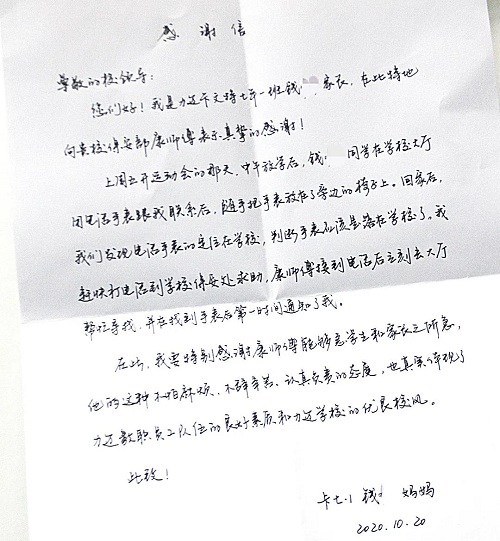 感谢信
尊敬的校领导：
您们好！我是力迈卡文特七年一班钱 家长，在此特地
向贵校保安部康师傅表示真挚的感谢！
上周五开运动会的那天，中午放学后，钱 同学在学校大厅
用电话手表跟我联系后，随手把手表放在了旁边的椅子上。回家后，
我们发现电话手表的定位在学校，判断手表应该是落在学校了。我
赶快打电话到学校保安处求助，康师傅接到电话后立刻去大厅
帮忙寻找，并在找到手表后第一时间通知了我。
在此，我要特别感谢康师傅能够急学生和家长之所急，
他的这种不怕麻烦、不辞辛苦、认真负责的态度，也真实体现了
力迈教职员工队伍的良好素质和力迈学校的优良校风。
此致！
卡七.1 钱 妈妈
2020.10.20